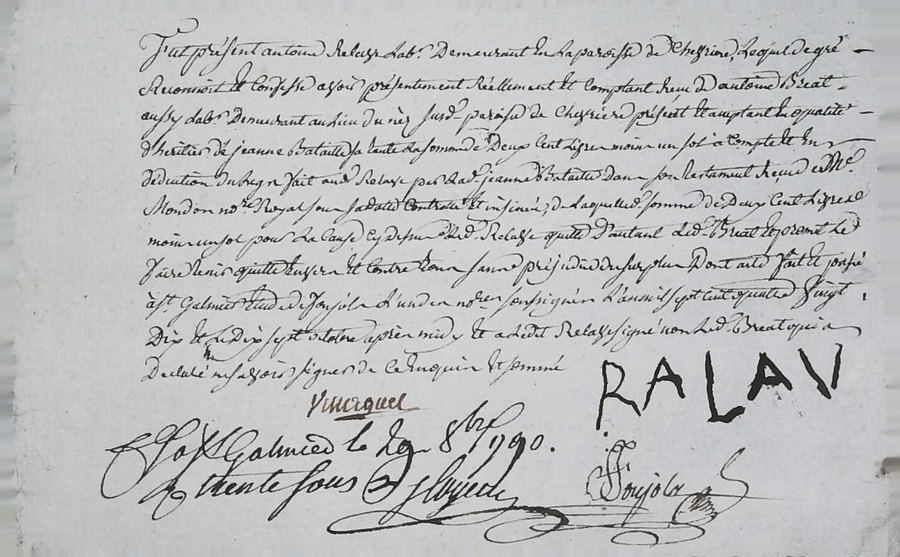 Fut présent antoine Relave Lab.r Demeurant En La paroisse de Chevriere, Lequel de gré
Reconnoit Et Confesse avoir présentement Réellement Et Comptant Receu De antoine Breat
aussy Lab.r Demeurant au Lieu du paroisse de Chevriere présent Et acceptant En qualité
d'heritier de jeanne Bataille sa tante La somme de Deux Cent Livres moins un sol à Compte Et En
Déduction du Legs fait aud. Relave par Lad. jeanne Bataille Dans son Testament Receu M.e
Mondon no.re Royal sous sa datte Controllé Et insinué, de Laquelle d. somme de Deux Cent Livres
moins un sol pour La Cause Cy dessus Led. Relave quitte D'autant Led. Breat Et promet Led.
faire tenir quitte Envers Et Contre tous sans préjudice du surplus Dont acte fait Et passé
à s.t Galmier Etude de fonjols L'un des no.res soussignés L'an mil sept cent quatre Vingt
Dix Et Le Dix sept octobre après midy Et a Ledit Relave signé non Led. Breat qui a
Declaré ne savoir signer de Ce Enquis Et sommé
RALAV
à S.t Galmier le 29 8bre 1790.
trente sous
fonjols